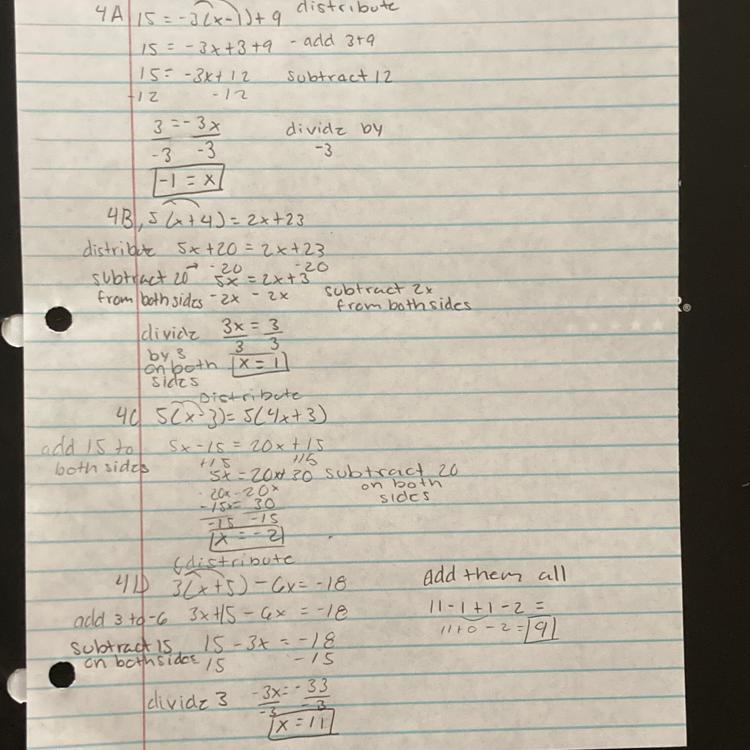 4A 15 = -3(x-1)+9 distribute
15 = -3x+3+9 - add 3+9
15 = -3x+12 subtract 12
-12 -12
3 = -3x divide by
-3 -3 -3
-1 = x
4B, 5(x+4) = 2x+23
distribute 5x+20 = 2x+23
-20 -20
subtract 20 → 5x = 2x+3 subtract 2x
from both sides -2x -2x from both sides
divide 3x = 3
by 3 3 3
on both x = 1
sides
Distribute
4C 5(x-3) = 5(4x+3)
add 15 to 5x-15 = 20x+15
both sides +15 +15
5x = 20x+30 subtract 20
-20x -20x on both
-15x = 30 sides
-15 -15
x = -2
distribute
4D 3(x+5) - 6x = -18 add them all
add 3 to -6 3x+15 - 6x = -18 11-1+1-2 =
subtract 15, 15 - 3x = -18 11+0-2 = 9
on both sides 15 -15
divide 3 -3x = -33
-3 -3
x = 11